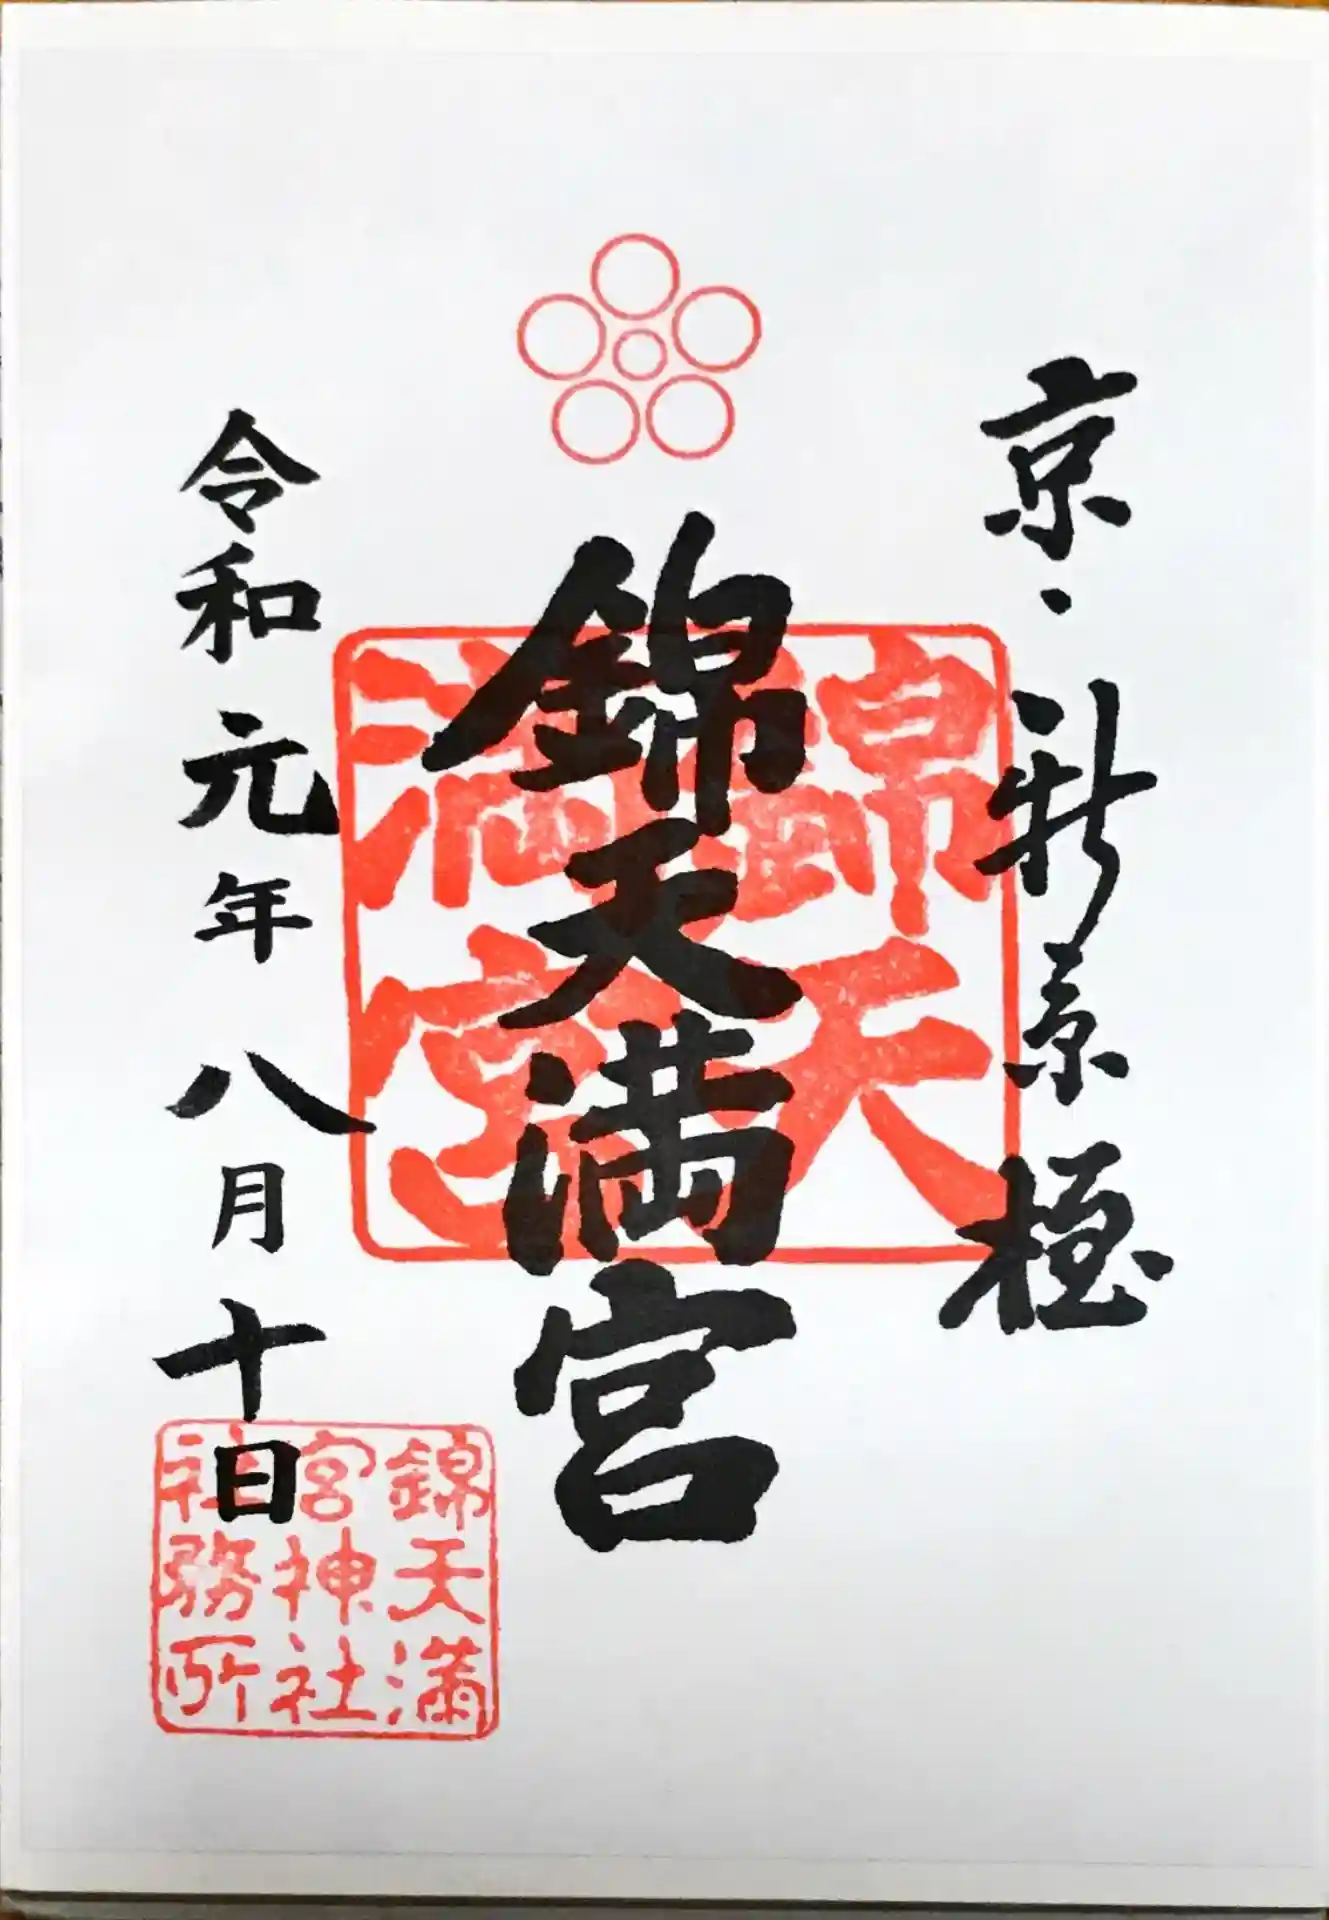 京・新京極
錦天満宮
錦天
満宮
令和元年八月十日
錦天満
宮神社
社務所